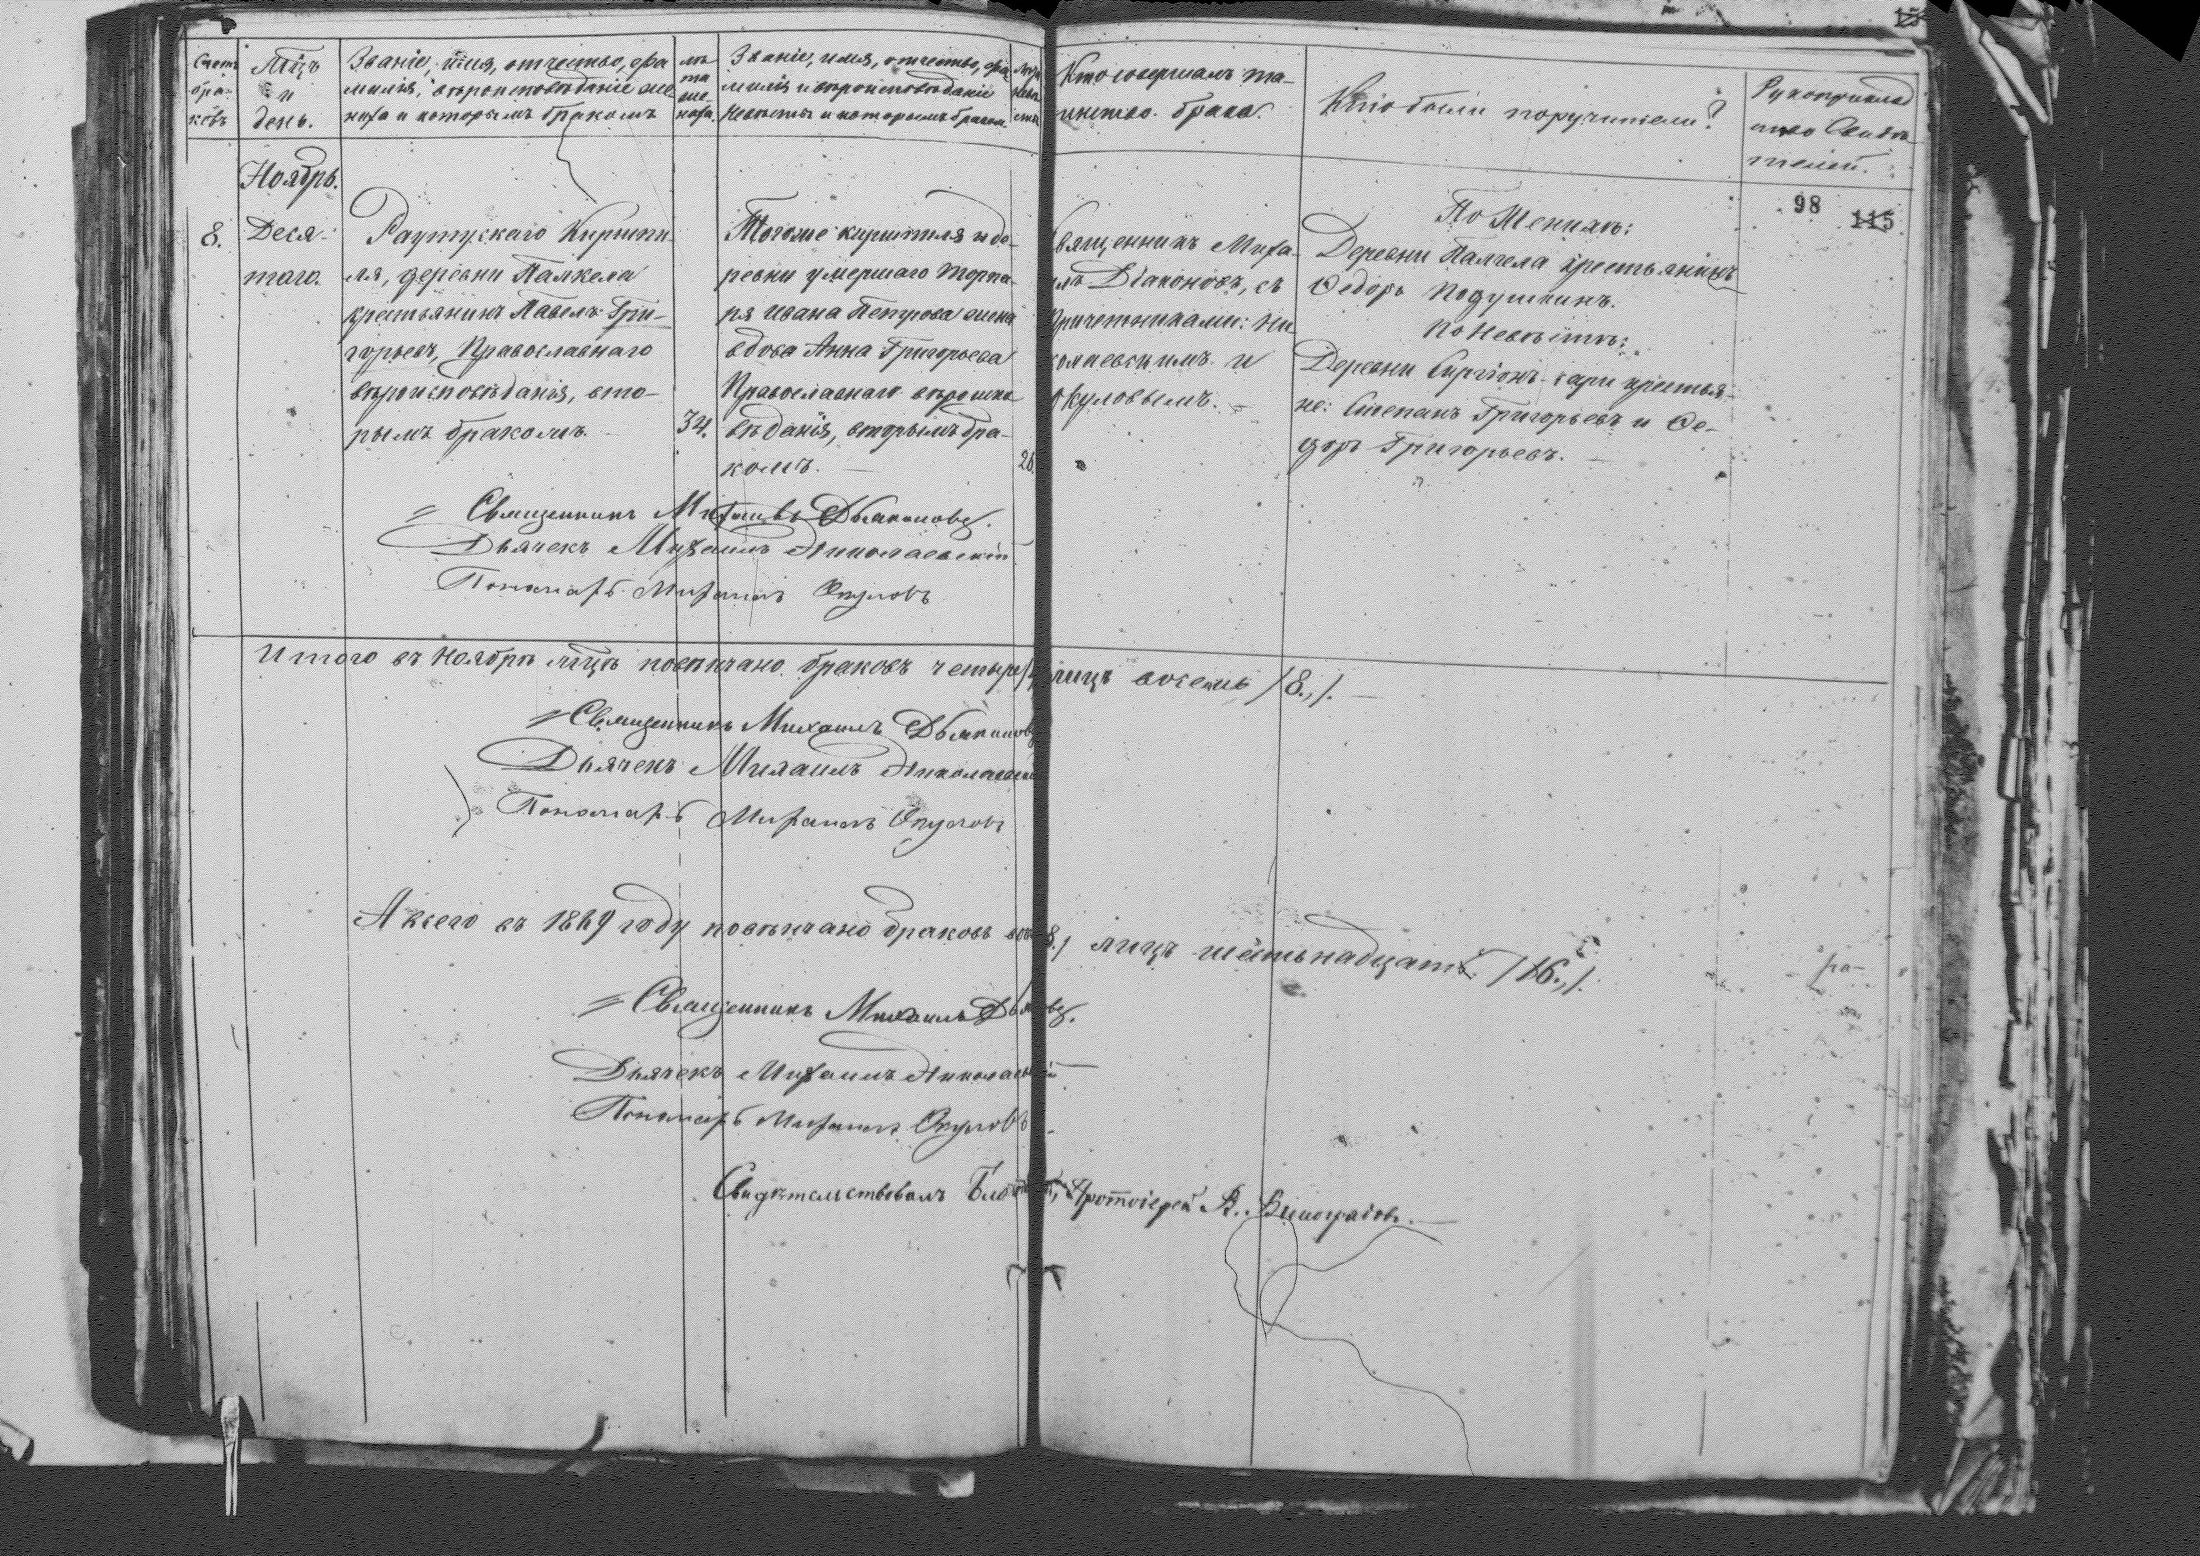 Счетъ бра-ковъ
Мцъ и день.
Званіе, имя, отчество, фа-
милія, вѣроисповѣданіе же-
ниха и которымъ бракомъ
лѣта жениха.
Званіе, имя, отчество, фа-
милія и вѣроисповѣданіе
невѣсты и которымъ бракомъ
Кто совершалъ та-
инство брака.
Кто были поручители?
Рукоприклад
ство Свидѣ
телей.
Ноябрь.
98 115
8.
Деся-
таго.
Раутускаго Кирьшпи-
ля, деревни Палкела
крестьянинъ Павелъ Гри-
горьевъ, Православнаго
вѣроисповѣданія, вто-
рымъ бракомъ.
34.
Тогоже киршпиля и де-
ревни умершаго торпа-
ря Ивана Петрова жена
вдова Анна Григорьева
Православнаго вѣроиспо
вѣданія, вторымъ бра-
комъ.
26.
Священникъ Миха-
илъ Діаконовъ, съ
причетниками: Ни
колаевскимъ и
Окуловымъ.
По Женихѣ:
Деревни Палгела крестьянинъ
Ѳедоръ Подушкинъ.
По Невѣстѣ:
Деревни крестья-
не: Степанъ Григорьевъ и Ѳе-
доръ Григорьевъ.
Священникъ Михаилъ Дьяконовъ.
Дьячекъ Михаилъ Николаевскій
Пономарь Михаилъ Окуловъ
Итого въ Ноябрѣ мцѣ повѣнчано браковъ четыре лицъ восемь /8./.
Священникъ Михаилъ Дьяконовъ
Дьячекъ Михаилъ Николаевскій
Пономарь Михаилъ Окуловъ
А всего въ 1869 году повѣнчано браковъ 8./ лицъ шестьнадцать /16./.
Священникъ Михаилъ Дьяконовъ.
Дьячекъ Михаилъ Николаевскій
Пономарь Михаилъ Окуловъ
Свидѣтельствовалъ Протоіерей В. Виноградовъ.